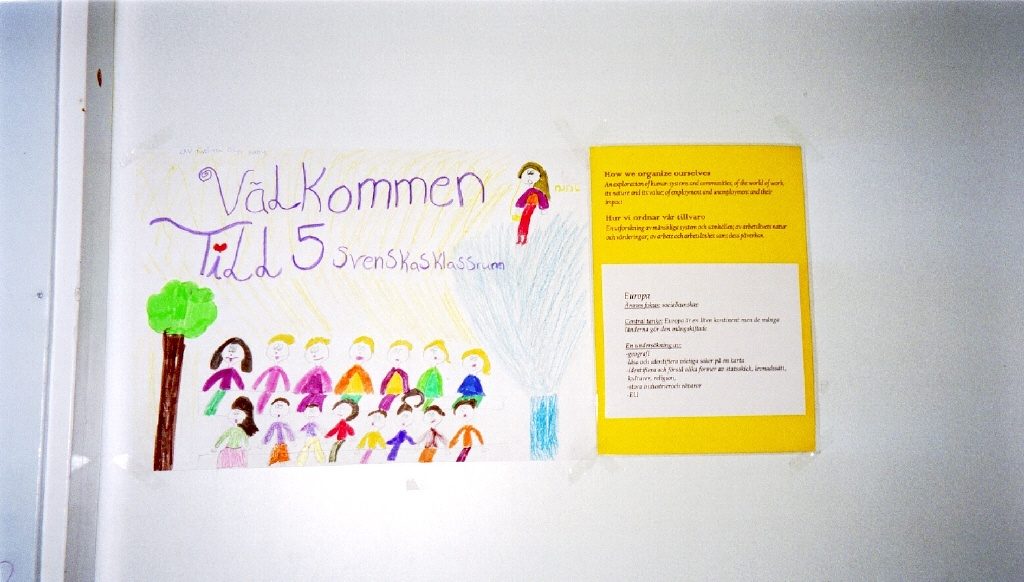 Välkommen
Till 5 svenskasklassrum
How we organize ourselves
An exploration of human systems and communities; of the world of work,
its nature and its value; of employment and unemployment and their
impact
Hur vi ordnar vår tillvaro
En utforskning av mänskliga system och samhällen; av arbetslivets natur
och värderingar; av arbete och arbetslöshet samt dess påverkan.
Europa
Ämnen fokus: socialkunskap
Central tanke: Europa är en liten kontinent men de många
länderna gör den mångskiftade
En undersökning av:
-geografi
-läsa och identifiera viktiga saker på en karta
-identifiera och förstå olika former av statsskick, levnadssätt,
kulturer, religion,
-stora industrier och råvaror
-EU